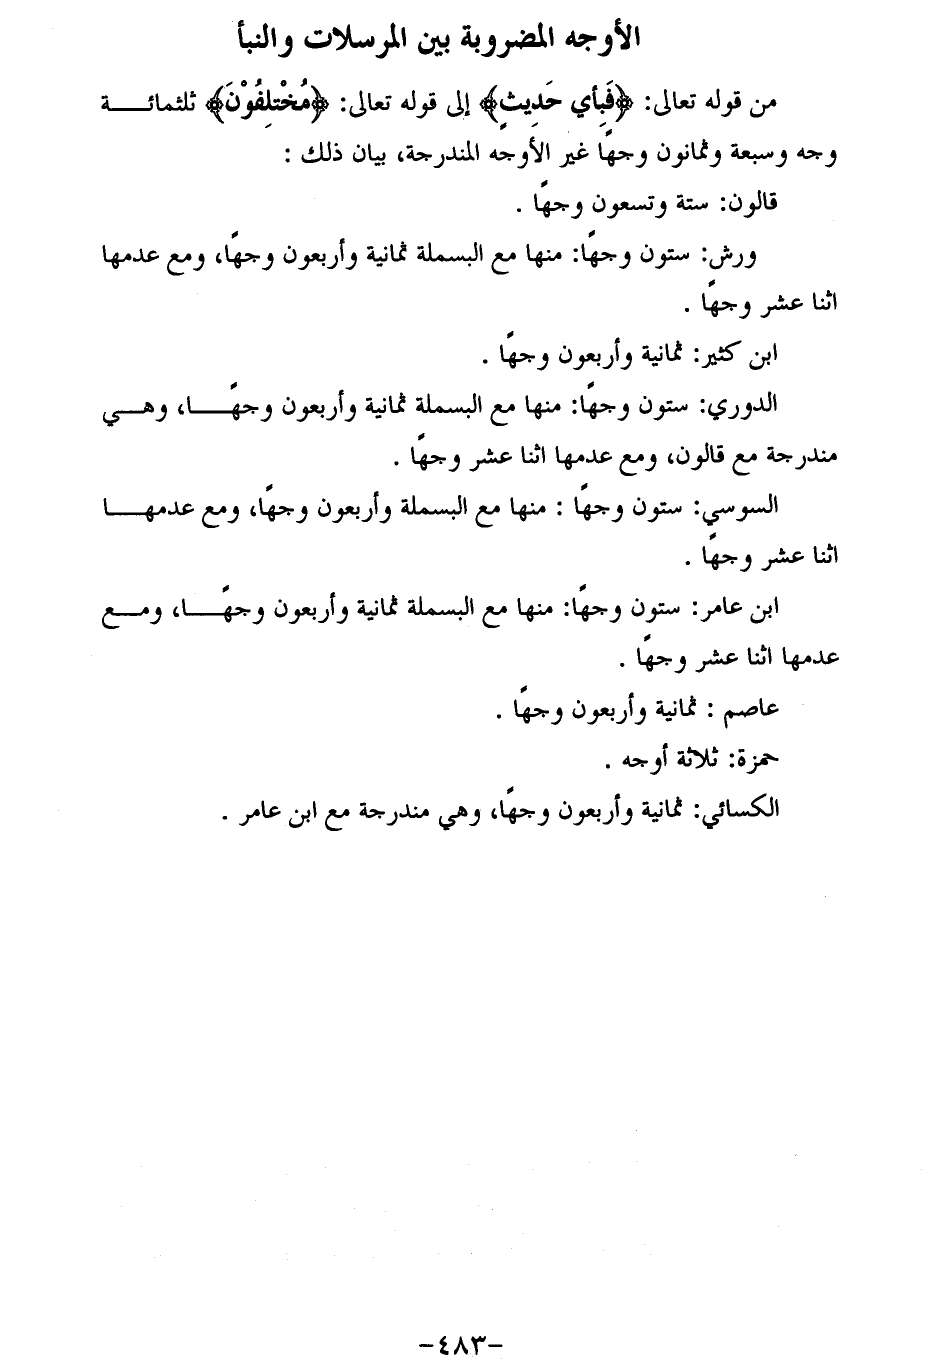 الأوجه المضروبة بين المرسلات والنبأ
من قوله تعالى: ﴿فَبِأَيِّ حَدِيثٍ﴾ إلى قوله تعالى: ﴿مُخْتَلِفُوْنَ﴾ ثلثمائـــة
وجه وسبعة وثمانون وجهًا غير الأوجه المندرجة، بيان ذلك :
قالون: ستة وتسعون وجهًا .
ورش: ستون وجهًا: منها مع البسملة ثمانية وأربعون وجهًا، ومع عدمها
اثنا عشر وجهًا .
ابن كثير: ثمانية وأربعون وجهًا .
الدوري: ستون وجهًا: منها مع البسملة ثمانية وأربعون وجهًـــا، وهـــي
مندرجة مع قالون، ومع عدمها اثنا عشر وجهًا .
السوسي: ستون وجهًا : منها مع البسملة وأربعون وجهًا، ومع عدمهـــا
اثنا عشر وجهًا .
ابن عامر: ستون وجهًا: منها مع البسملة ثمانية وأربعون وجهًـــا، ومـــع
عدمها اثنا عشر وجهًا .
عاصم : ثمانية وأربعون وجهًا .
حمزة: ثلاثة أوجه .
الكسائي: ثمانية وأربعون وجهًا، وهي مندرجة مع ابن عامر .
-٤٨٣-